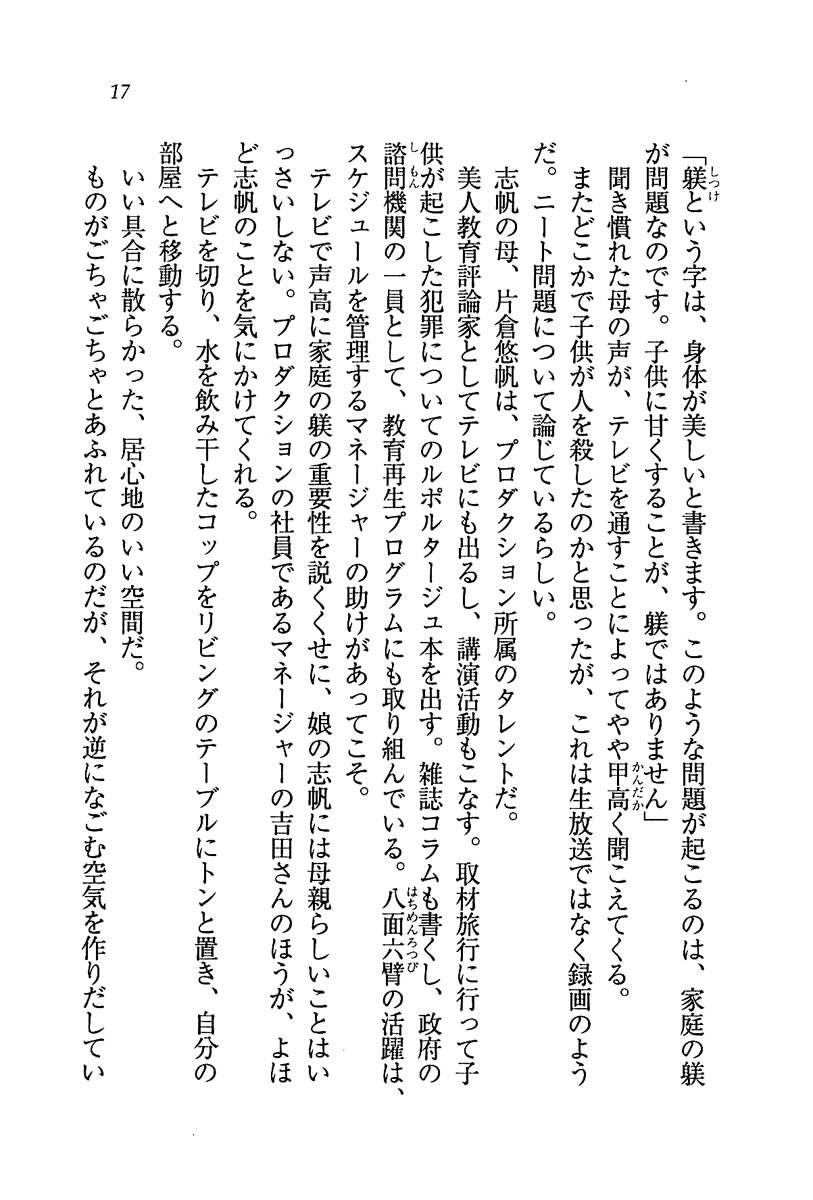 17
「躾という字は、身体が美しいと書きます。このような問題が起こるのは、家庭の躾
が問題なのです。子供に甘くすることが、躾ではありません」
聞き慣れた母の声が、テレビを通すことによってやや甲高く聞こえてくる。
またどこかで子供が人を殺したのかと思ったが、これは生放送ではなく録画のよう
だ。ニート問題について論じているらしい。
志帆の母、片倉悠帆は、プロダクション所属のタレントだ。
美人教育評論家としてテレビにも出るし、講演活動もこなす。取材旅行に行って子
供が起こした犯罪についてのルポルタージュ本を出す。雑誌コラムも書くし、政府の
諮問機関の一員として、教育再生プログラムにも取り組んでいる。八面六臂の活躍は、
スケジュールを管理するマネージャーの助けがあってこそ。
テレビで声高に家庭の躾の重要性を説くくせに、娘の志帆には母親らしいことはい
っさいしない。プロダクションの社員であるマネージャーの吉田さんのほうが、よほ
ど志帆のことを気にかけてくれる。
テレビを切り、水を飲み干したコップをリビングのテーブルにトンと置き、自分の
部屋へと移動する。
いい具合に散らかった、居心地のいい空間だ。
ものがごちゃごちゃとあふれているのだが、それが逆になごむ空気を作りだしてい